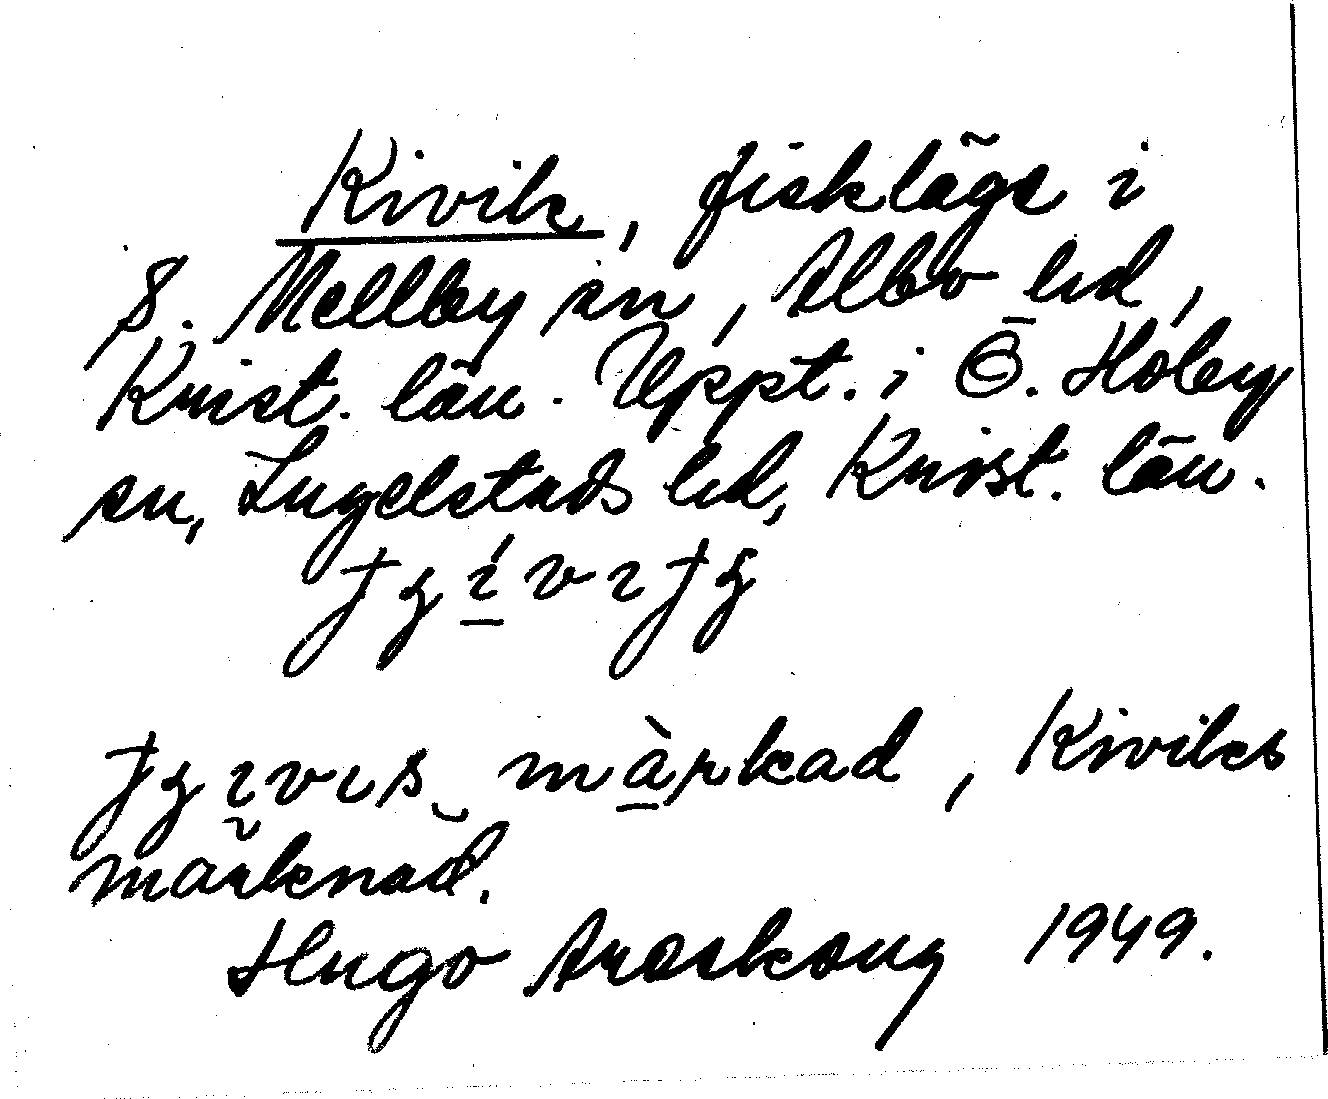 Kivik, fiskläge i
S. Mellby sn, Albo hd,
Krist. län. Uppt. i Ö. Hoby
sn, Ingelstads hd, Krist. län.
màrkad, Kiviks
marknad.
Hugo Areskoug 1949.